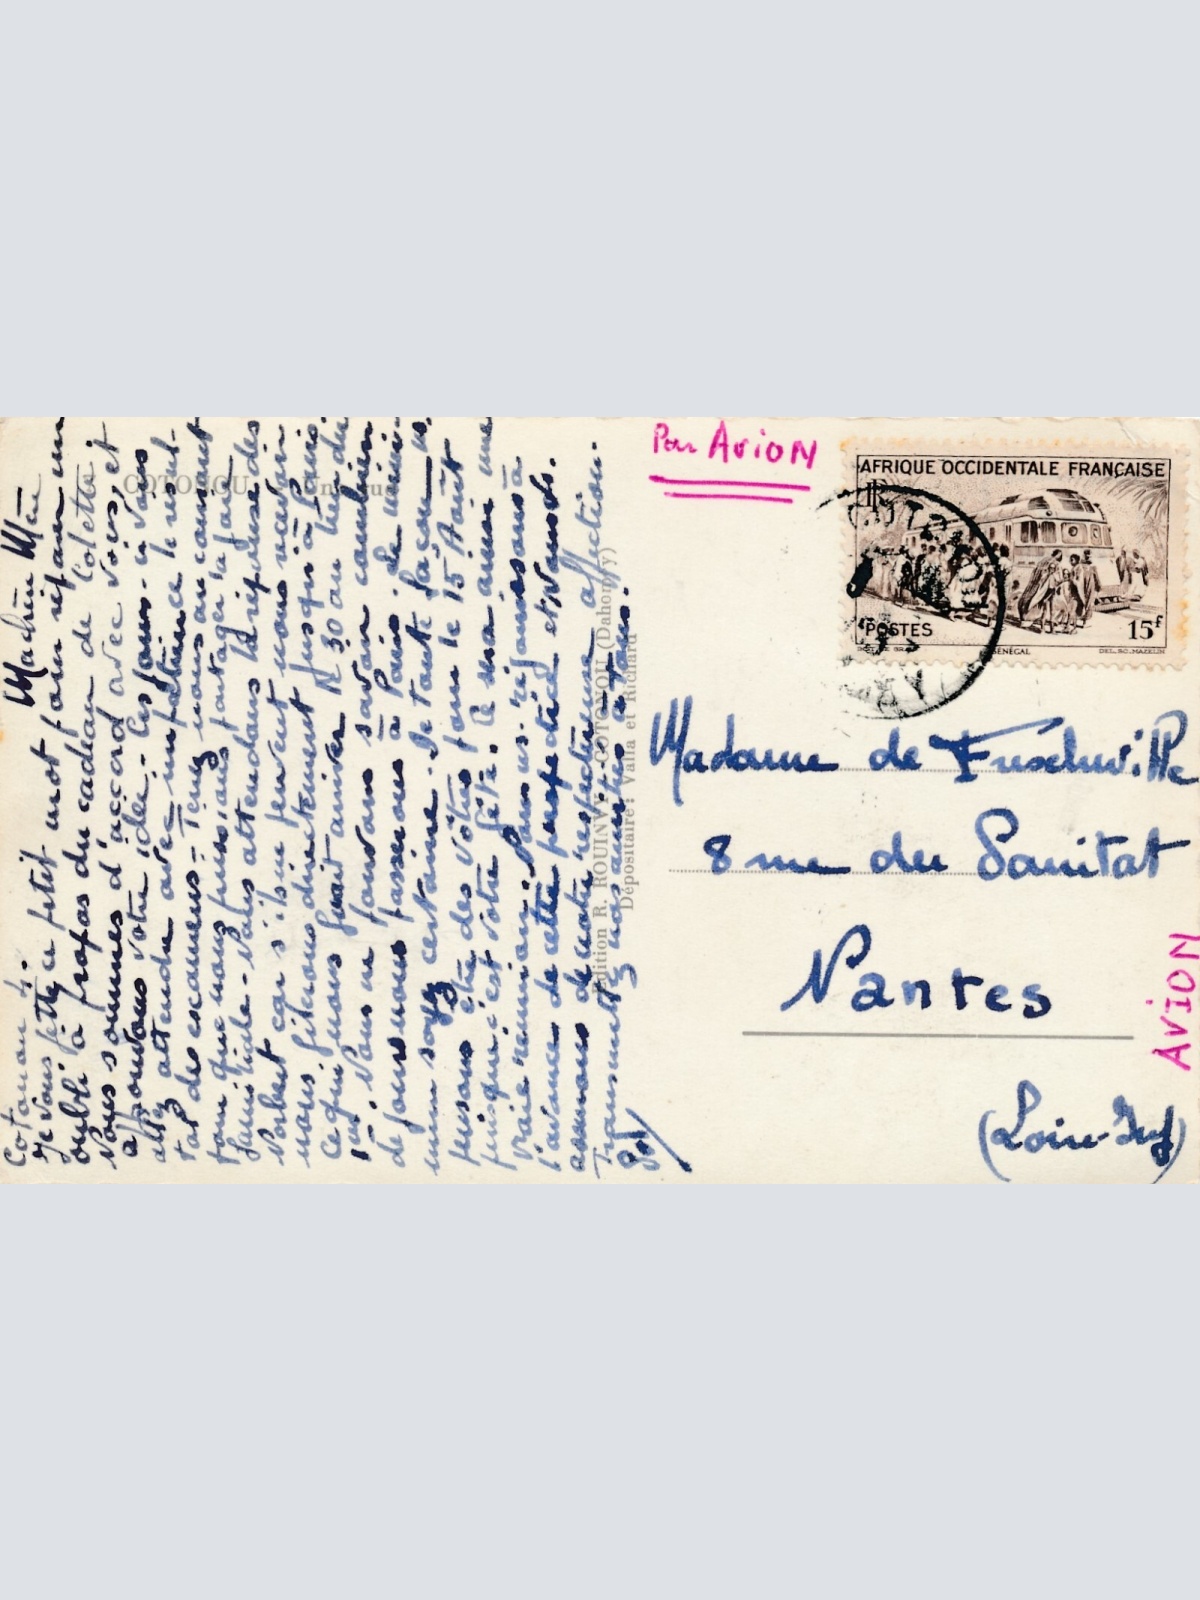 Cotonou 4.
Machère Mère
Je vous jette ce petit mot pour réparer un
oubli à propos du cadeau de Colette.
Nous sommes d'accord avec vous, et
approuvons votre idée. Ces jours-ci vous
allez attendre avec impatience le résul-
tat des examens. Tenez nous au courant
pour que nous puissions partager la joie
familiale. Nous attendons la réponse des
Norbert car s'ils ne peuvent nous recevoir
nous filerons directement jusqu'à Paris
ce qui nous ferait arriver le 30 au lieu du
1er. Nous ne pouvons savoir combien
de jours nous passerons à Paris. Le mini-
mum soyez certaine. De toute façon nous
serons des vôtres pour le 15 Août
puisque c'est votre fête. Ce sera aussi une
vraie réunion! Nous nous réjouissons à
l'avance de cette perspective et vous
assurons de notre respectueuse affection.
Transmettez nos amitiés à tous.
COTONOU
Edition R. ROUINVY COTONOU (Dahomey)
Dépositaire: Valla et Richard
Par Avion
AFRIQUE OCCIDENTALE FRANÇAISE
RF
POSTES
15F
SÉNÉGAL
DEL. SC. MAZELIN
COTONOU
Madame de
8 rue du Sanitat
Nantes
(Loire-Inf)
AVION